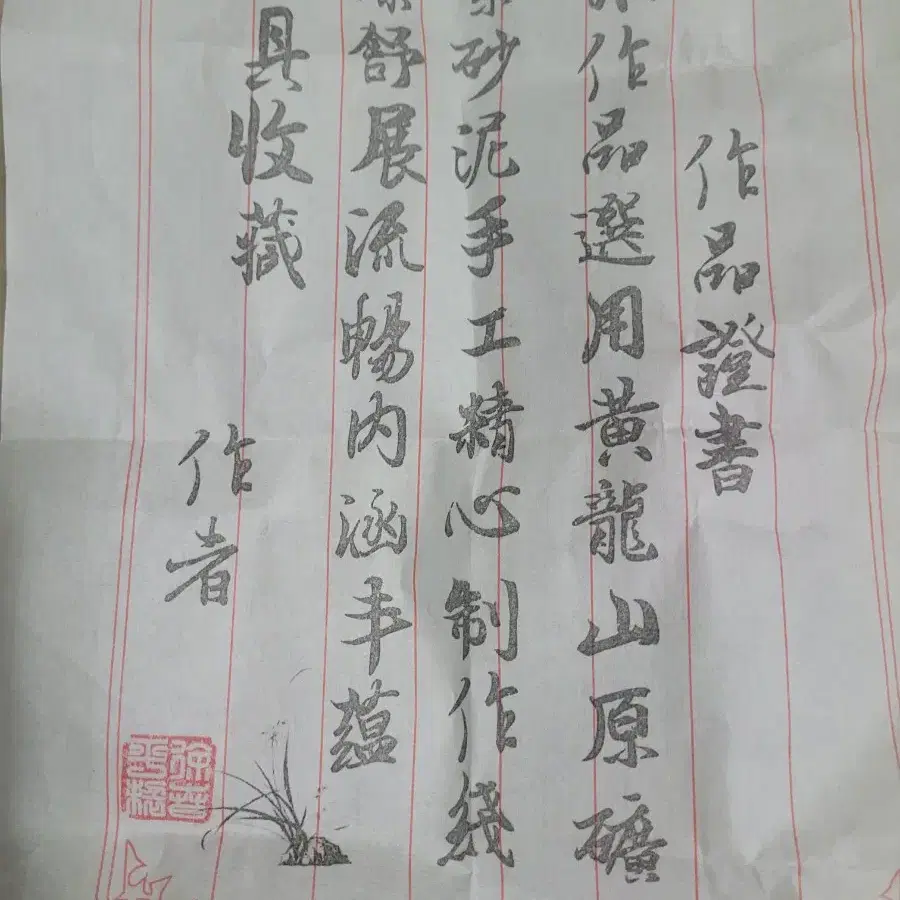 作品證書
作品選用黄龍山原礦
砂泥手工精心制作綫
舒展流暢内涵丰蕴
具收藏
作者